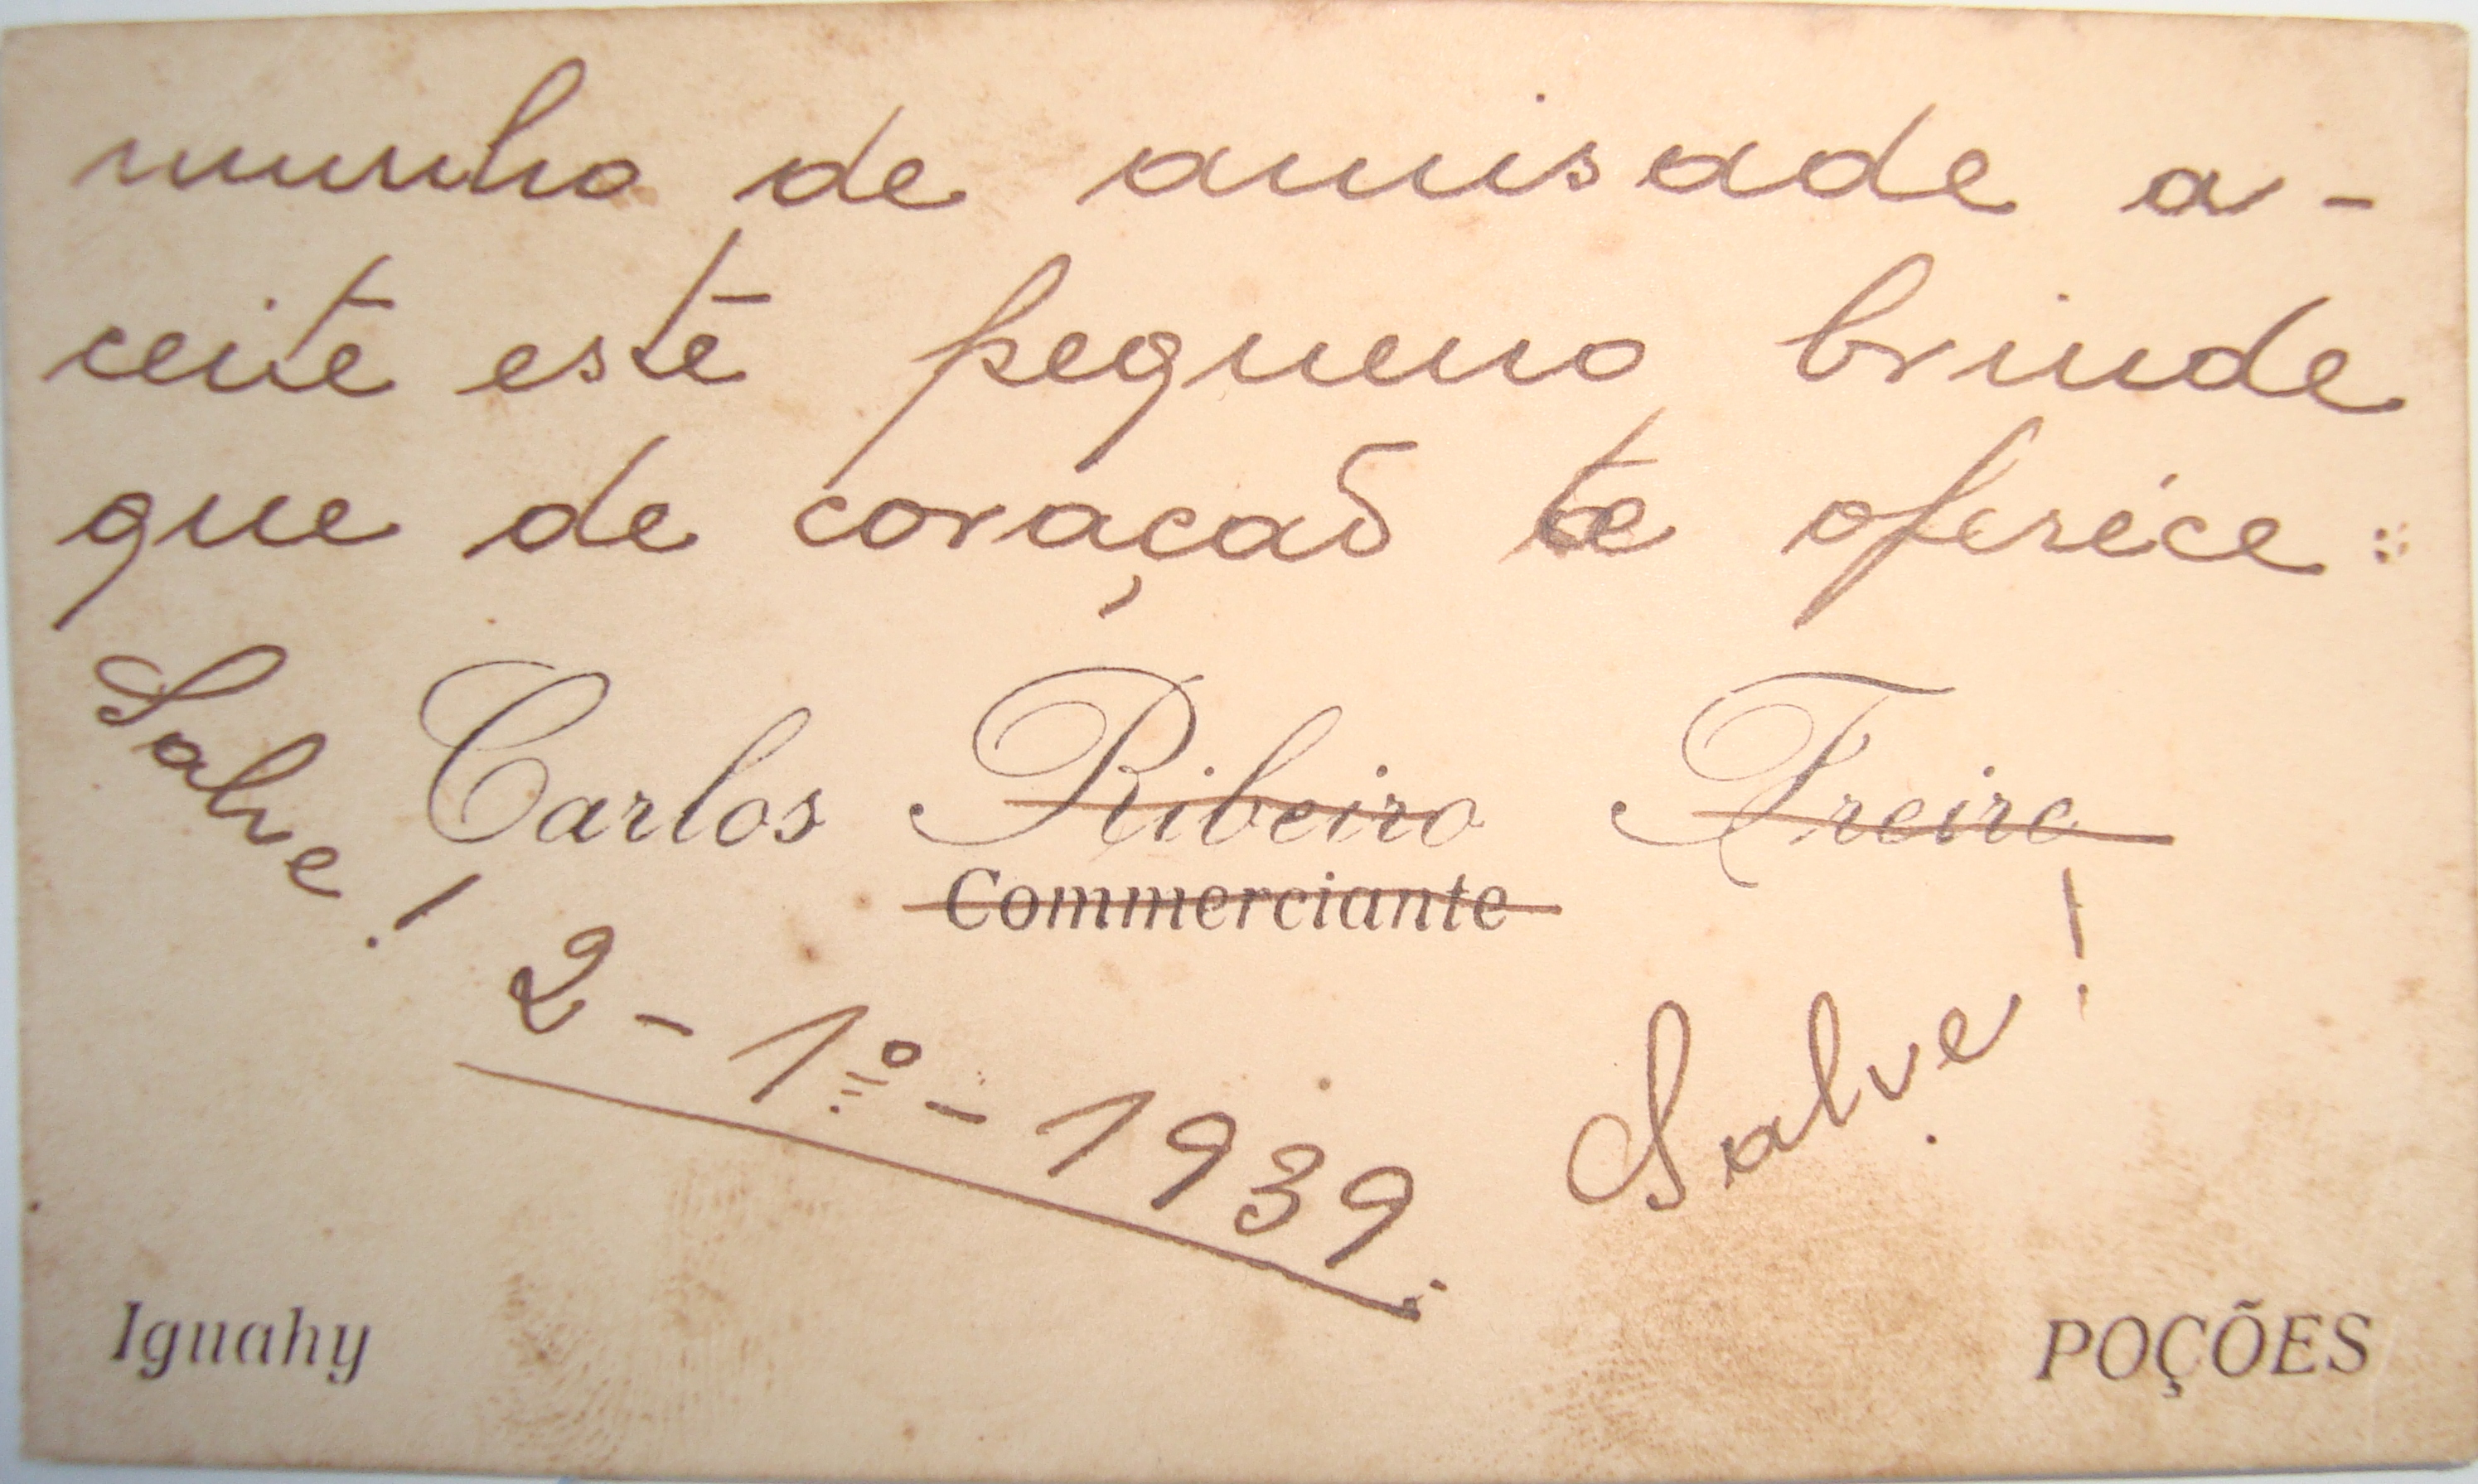 munho de amisade a-
ceite este pequeno brinde
que de coração te oferéce:
Salve!
Carlos Ribeiro Freire
Commerciante
2-1º-1939.
Salve!
Iguahy
POÇÕES